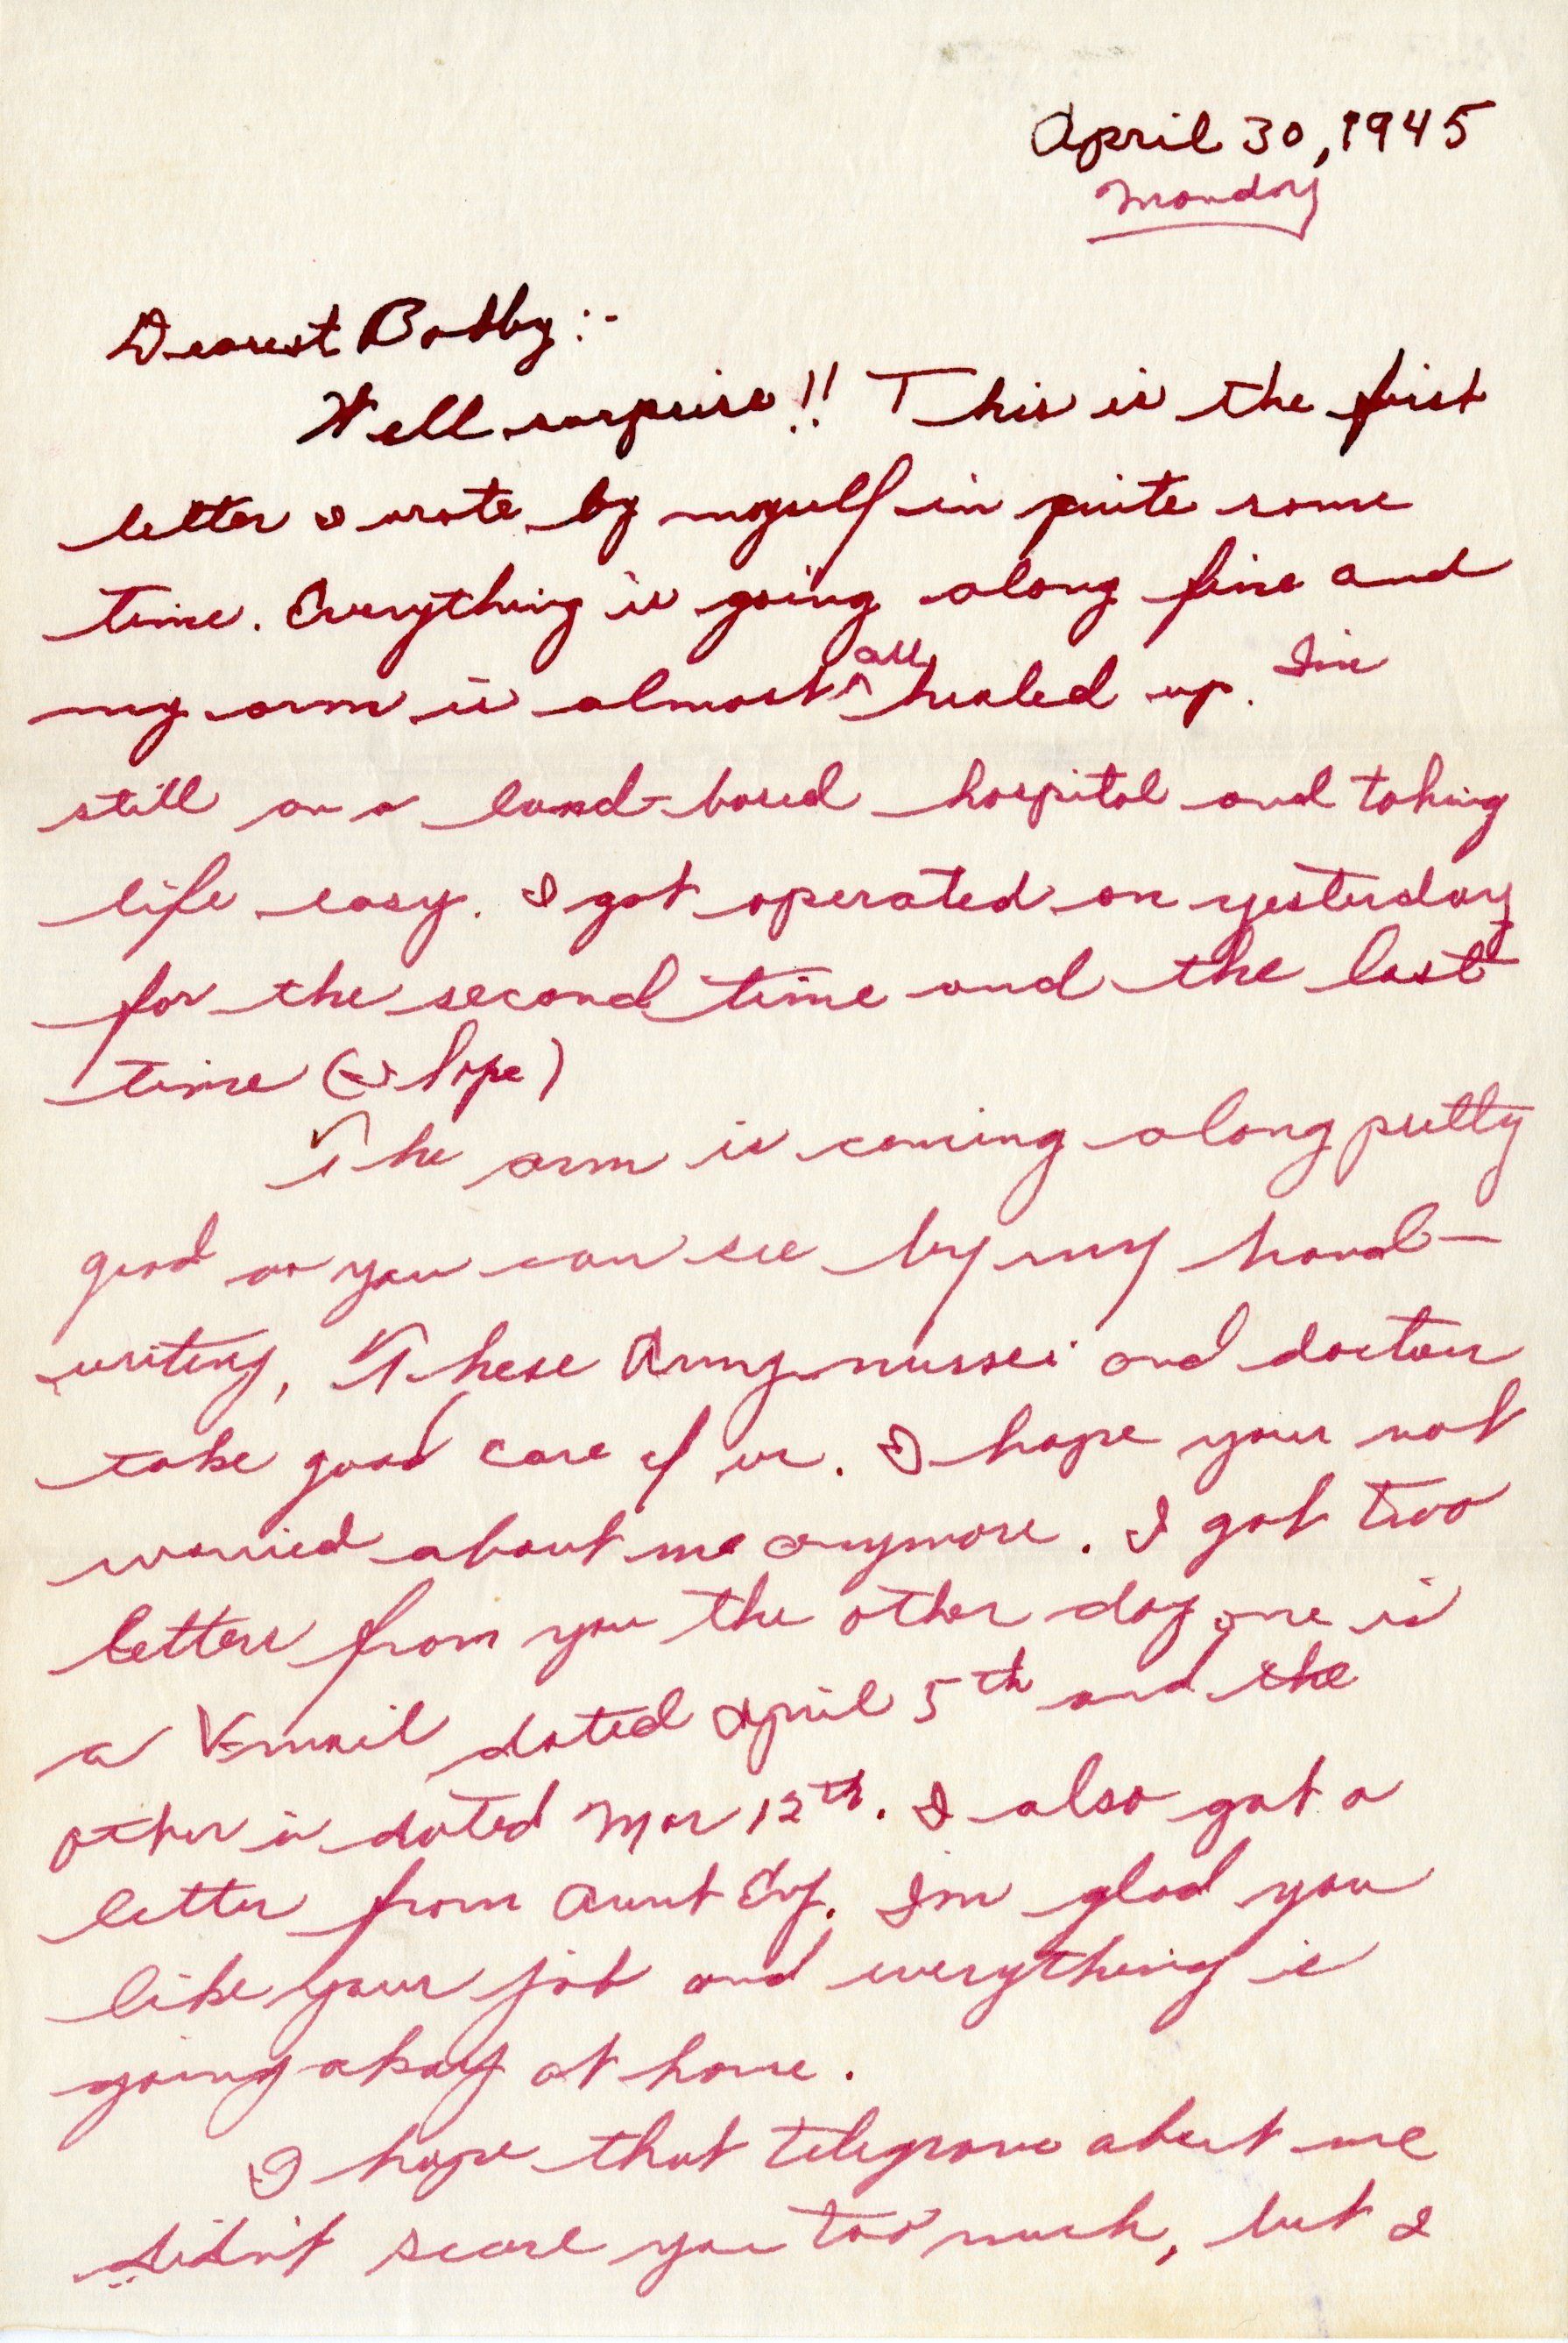 April 30, 1945
Monday
Dearest Bobby:-
Well surprise!! This is the first
letter I wrote by myself in quite some
time. Everything is going along fine and
my arm is almost ^all healed up. I'm
still on a land-based hospital and taking
life easy. I got operated on yesterday
for the second time and the last
time (I hope)
The arm is coming along pretty
good as you can see by my hand-
writing, These Army nurses and doctors
take good care of us. I hope your not
worried about me anymore. I got two
letters from you the other day one is
a V-mail dated April 5th and the
other is dated Mar 12th. I also got a
letter from Aunt Evy. I'm glad you
like your job and everything is
going okay at home.
I hope that telegram about me
didn't scare you too much, but I